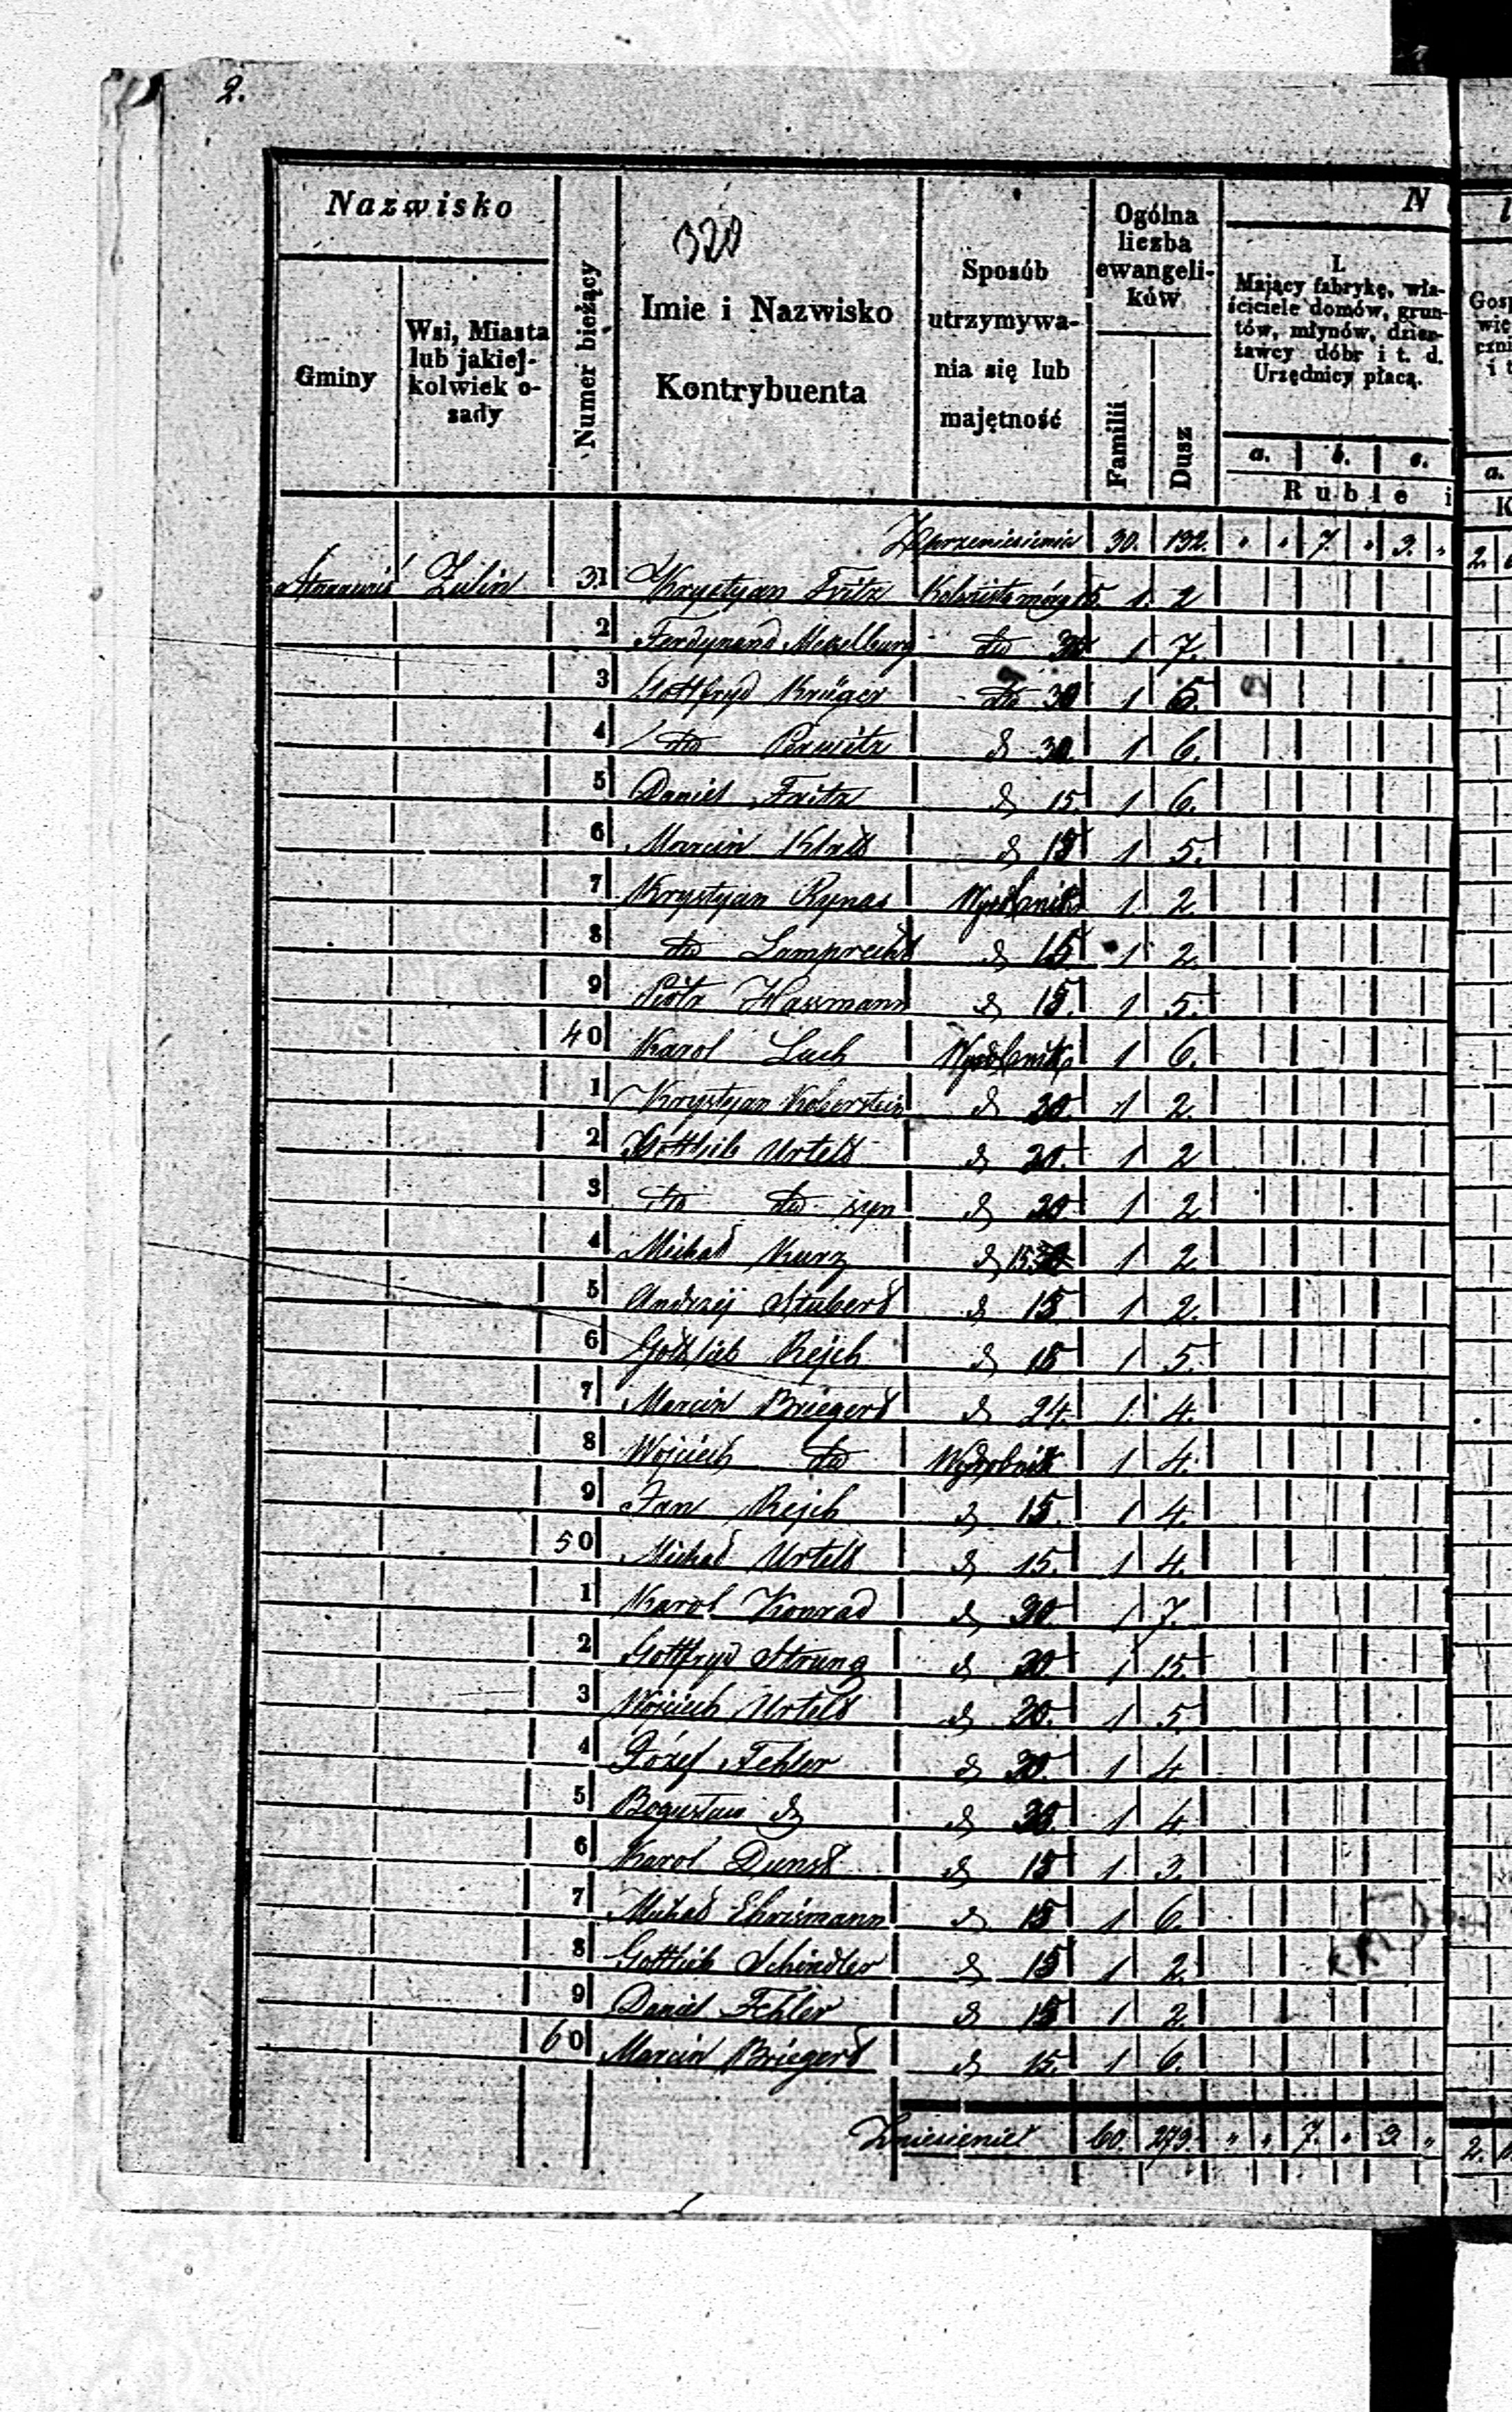 2.
Nazwisko
Gminy
Wsi, Miasta
lub jakiej-
kolwiek o-
sady
Numer bieżący
320
Imie i Nazwisko
Kontrybuenta
Sposób
utrzymywa-
nia się lub
majętność
Ogólna
liczba
ewangeli-
ków
Familii
Dusz
N
I.
Mający fabrykę, wła-
ściciele domów, grun-
tów, młynów, dzier-
żawcy dóbr i t. d.
Urzędnicy płacą.
a. b. c.
Ruble i
Z przeniesienia 30. 192. " " 7. " 3. "
Zulin 31 Krystyan Fritz Kolonista mórg 15. 1. 2
2 Ferdynand Mekelburg dto 30 1 7.
3 Gottfryd Krüger dto 30 1 5.
4 dto Perwitz d 30. 1 6.
5 Daniel Fritz d 15. 1 6.
6 Marcin Klatt d 15 1 5.
7 Krystyan Rynas Wyrobnik 1. 2
8 dto Lamprecht d 15 1 2.
9 Piotr Hassmann d 15. 1. 5.
40 Karol Luch Wyrobnik 1 6.
1 Krystyan Koberstein d 20. 1 2.
2 Gottlieb Urteld d 20. 1 2
3 dto dto syn d 20. 1 2.
4 Michał Kurz d 15 1 2.
5 Andrzej Stuberd d 15 1 2.
6 Gottlieb Rejch d 15 1 5.
7 Marcin Briegerd d 24. 1. 4.
8 Wojciech dto Wyrobnik 1 4.
9 Jan Rejch d 15. 1 4.
50 Michał Urteld d 15. 1 4.
1 Karol Konrad d 30. 1 7.
2 Gottfryd Strung d 30 1 15.
3 Wojciech Urteld d 20. 1 5.
4 Józef Fehler d 30. 1 4
5 Bogusław d d 30. 1 4.
6 Karol Dunst d 15 1 3.
7 Michał Ehrismann d 15 1 6.
8 Gottlieb Schindler d 15 1 2.
9 Daniel Fehler d 15 1 2.
60 Marcin Briegerd d 15. 1 6.
Zniesienie 60. 279. " " 7. " 3. "